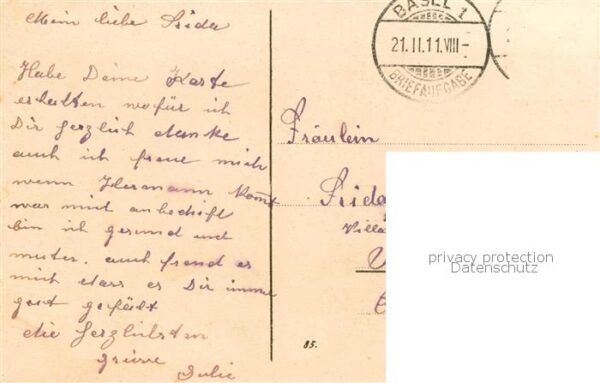 Mein liebe Frida
Habe Deine Karte
erhalten wofür ich
Dir herzlich danke
auch ich freue mich
wenn Hermann komt
was mich anbedrift
bin ich gesund und
munter. auch freud es
mich dass es Dir imme
gut gefällt
die herzlichsten
grüsse
Julie
BASEL 1
21.II.11.VIII-
BRIEFAUFGABE
Fräulein
Frida
Villa
privacy protection
Datenschutz
85.